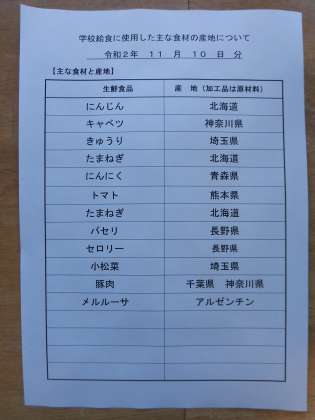 学校給食に使用した主な食材の産地について
令和２年 １１ 月 １０ 日 分
【主な食材と産地】
生鮮食品 産 地（加工品は原材料）
にんじん 北海道
キャベツ 神奈川県
きゅうり 埼玉県
たまねぎ 北海道
にんにく 青森県
トマト 熊本県
たまねぎ 北海道
パセリ 長野県
セロリー 長野県
小松菜 埼玉県
豚肉 千葉県 神奈川県
メルルーサ アルゼンチン